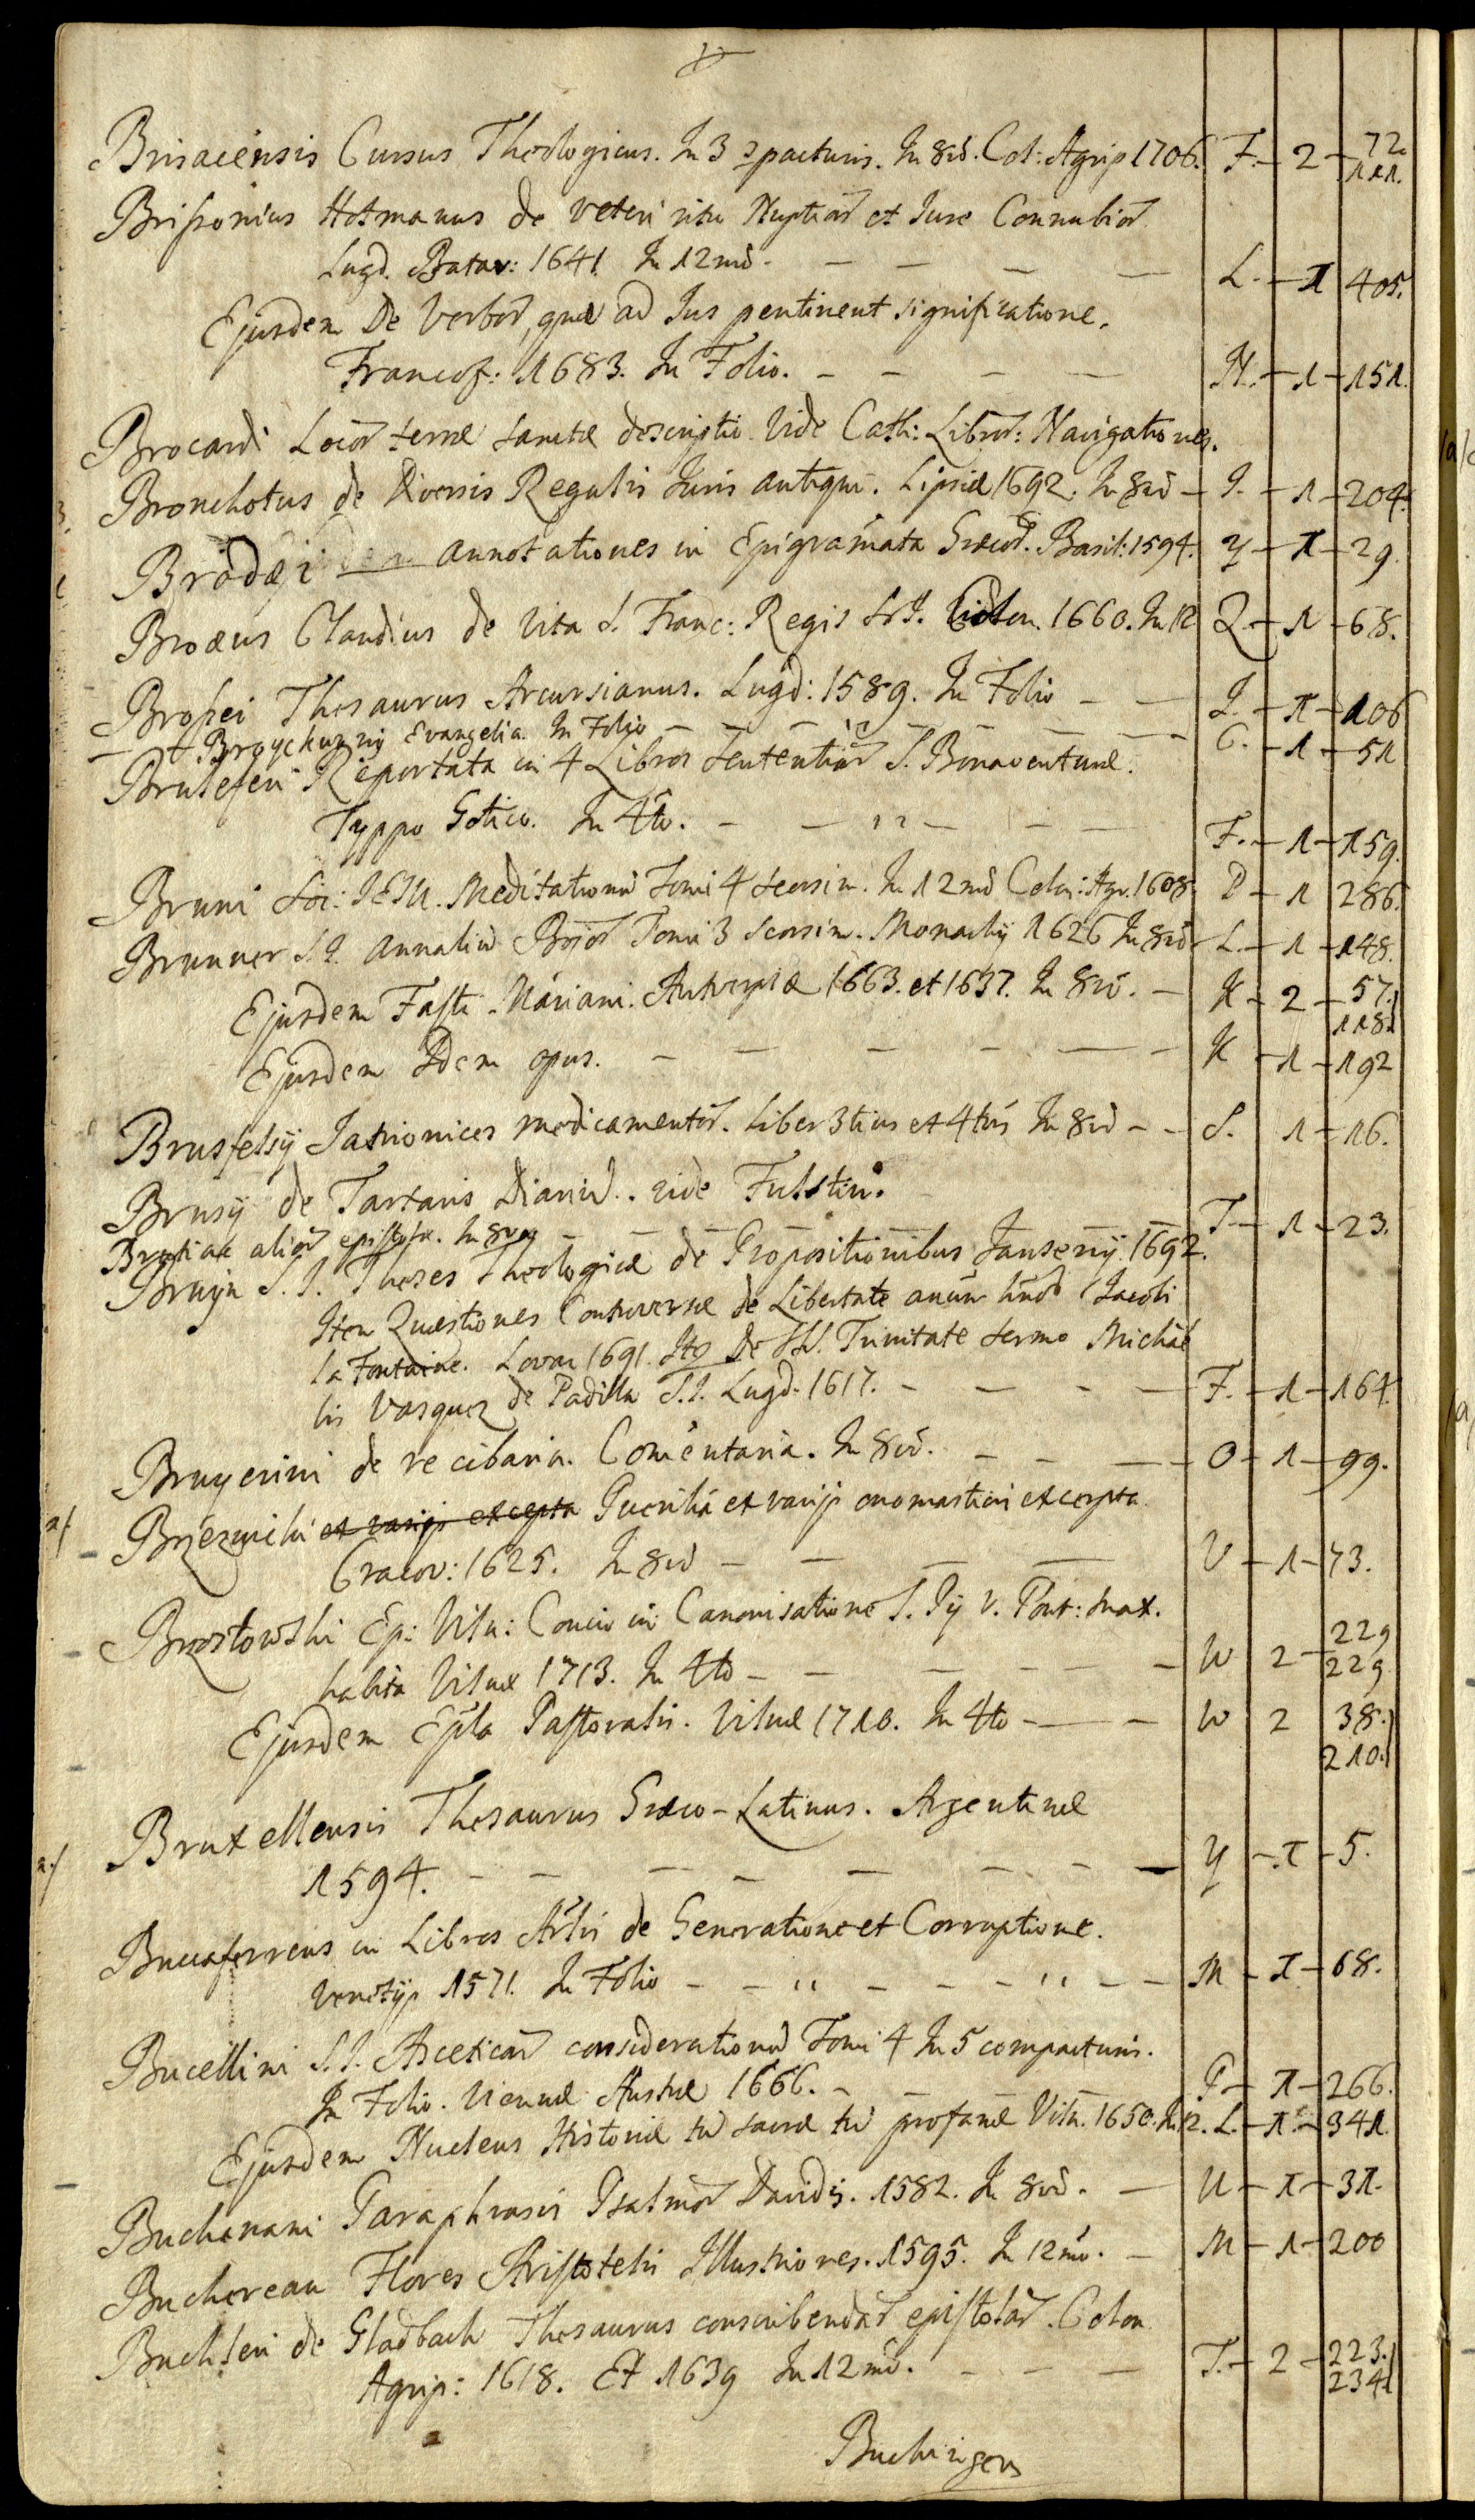 Brisacensis Cursus Theologicus. In 3 compacturis. In 8vo. Col: Agrip 1706. F. - 2 - 72
111.
Brissonius Hotmanus de veteri ritu Nuptiar et Jure Connubior
Lugd. Batav: 1641. In 12mo. - - - - L. - 1 405.
Ejusdem De Verbor, quæ ad Jus pertinent significatione.
Francof: 1683. In Folio. - - - - H. - 1 - 151.
Brocardi Locor terræ sanctæ descriptio. Vide Cath: Libror: Navigationes.
Bronchotus de Diversis Regulis Juris antiqui. Lipsiæ 1692. In 8vo - J. - 1 - 204.
Brodæi annotationes in Epigramata Græcor. Basil: 1594. Y - 1 - 29.
Broæus Claudius de Vita S. Franc: Regis S.J. 1660. In 12 Q. - 1 - 68.
Brossei Thesaurus Accursianus. Lugd: 1589. In Folio - - J. - 1 - 106
Evangelia. In Folio - - - - - - C. - 1 - 51
Bruleferi Reportata in 4 Libros Sententiar S. Bonaventuræ.
Typpo Gotico. In 4to. - - - - - F. - 1 - 159.
Bruni Soc: JESU. Meditationu Tomi 4 seorsim. In 12mo Colon: Agr. 1608 P - 1 286.
Brunner S.J. Annaliu Boior Tomi 3 seorsim. Monachij 1626 In 8vo L. - 1 - 148.
Ejusdem Fasti Mariani. Antverpiæ 1663. et 1637. In 8vo. - K - 2 - 57.
118.
Ejusdem Idem opus. - - - - - - K - 1 - 192
Brusfelsij Jatrionices medicamentor. Liber 3tius et 4tus In 8vo - - S. 1 - 16.
Brusij de Tartaris Diariu. vide Fulstin.
Brutiaæ alior epistolæ. In 8vo - - - - - - T. - 1 - 23.
Bruyn S.J. Theses Theologicæ de Propositionibus Jansenij. 1692.
Item Quæstiones Controversæ de Libertate Jacobi
la Fontaine. Lovan 1691. Ite De SS. Trinitate sermo Michaë
lis Vasquez de Padilla S.J. Lugd. 1617. - - - - F. - 1 - 164.
Bruyerini de re cibaria. Comentaria. In 8vo. - - - - O - 1 - 99.
Brzezwicki et varijs excepta Puerilia et varijs onomastici excerpta
Cracov: 1625. In 8vo - - - - V - 1 - 73.
Brzostowski Ep: Viln: Concio in Canonisatione S. Pij V. Pont: Max.
habita Vilnæ 1713. In 4to - - - - - - W 2 - 229
229
Ejusdem Epla Pastoralis. Vilnæ 1710. In 4to - - - W 2 38.
210.
Bruxellensis Thesaurus Græco-Latinus. Argentinæ
1594. - - - - - - - - Y - 1 - 5.
Buccaferreus in Libros Artlis de Generatione et Corruptione.
Venetijs 1571. In Folio - - - - - - - M - 1 - 68.
Bucellini S.J. Asceticar considerationu Tomi 4 In 5 compacturis.
In Folio. Viennæ Austriæ 1666. - P - 1 - 266.
Ejusdem Nucleus Historiæ tu sacræ tu profanæ Viln. 1650. In 12. L. - 1 - 341.
Buchanani Paraphrasis Psalmor Davidis. 1582. In 8vo. - U - 1 - 31.
Buchereau Flores Aristotelis Illustriores. 1595. In 12mo. - M - 1 - 200
Buchleri de Gladbach Thesaurus conscribendar epistolar. Colon
Agrip: 1618. Et 1639 In 12mo. - - - T. - 2 - 223.
234
Buchingers